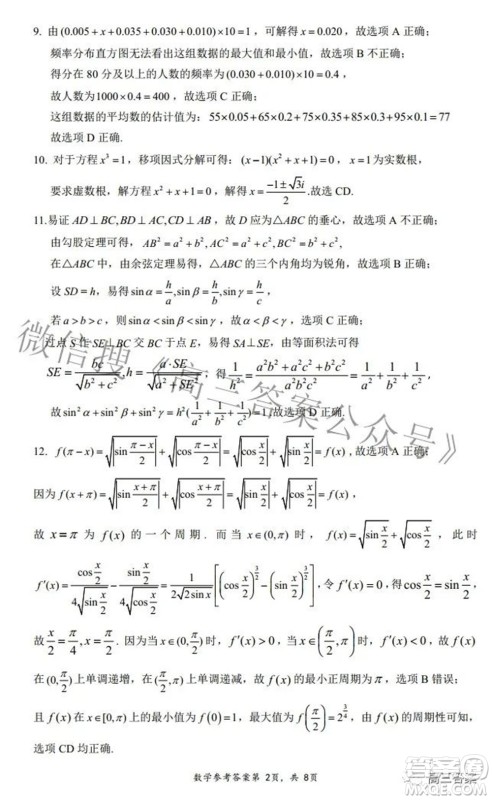 9. 由 (0.005 + x + 0.035 + 0.030 + 0.010) × 10 = 1，可解得 x = 0.020，故选项 A 正确；
频率分布直方图无法看出这组数据的最大值和最小值，故选项 B 不正确；
得分在 80 分及以上的人数的频率为 (0.030 + 0.010) × 10 = 0.4，
故人数为1000 × 0.4 = 400，故选项 C 正确；
这组数据的平均数的估计值为：55×0.05+65×0.2+75×0.35+85×0.3+95×0.1=77
故选项 D 正确.
10. 对于方程 x³ = 1，移项因式分解可得：(x−1)(x² + x + 1) = 0，x = 1 为实数根，
要求虚数根，解方程 x² + x + 1 = 0，解得 x = (−1 ± √3i)/2 .故选 CD.
11.易证 AD⊥BC, BD⊥AC, CD⊥AB，故 D 应为△ABC 的垂心，故选项 A 不正确；
由勾股定理可得，AB² = a² + b², AC² = a² + c², BC² = b² + c²，
在△ABC 中，由余弦定理易得，△ABC 的三个内角均为锐角，故选项 B 正确；
设 SD = h，易得 sin α = h/a, sin β = h/b, sin γ = h/c，
若 a > b > c，则 sin α < sin β < sin γ，故 α < β < γ，选项 C 正确；
过点 S 作 SE⊥BC 交 BC 于点 E，易得 SA⊥SE，由等面积法可得
SE = bc/√(b² + c²), h = a·SE/√(a² + SE²)，得 1/h² = (a²b² + a²c² + b²c²)/(a²b²c²) = 1/a² + 1/b² + 1/c²，
故 sin² α + sin² β + sin² γ = h²(1/a² + 1/b² + 1/c²) = 1,故选项 D 正确.
12. f(π − x) = √|sin (π−x)/2| + √|cos (π−x)/2| = √|cos x/2| + √|sin x/2| = f(x)，故选项 A 正确；
因为 f(x + π) = √|sin (x+π)/2| + √|cos (x+π)/2| = √|cos x/2| + √|sin x/2| = f(x)，
故 x = π 为 f(x) 的一个周期. 而当 x∈(0,π) 时，f(x) = √(sin x/2) + √(cos x/2)，此时
f′(x) = (cos x/2)/(4√(sin x/2)) − (sin x/2)/(4√(cos x/2)) = 1/(2√(2sin x)) [(cos x/2)^(3/2) − (sin x/2)^(3/2)]，令 f′(x) = 0，得 cos x/2 = sin x/2，
故 x/2 = π/4, x = π/2. 因为当 x∈(0, π/2) 时，f′(x) > 0，当 x∈(π/2, π) 时，f′(x) < 0，故 f(x)
在 (0, π/2) 上单调递增，在 (π/2, π) 上单调递减，故 f(x) 的最小正周期为 π，选项 B 错误；
且 f(x) 在 (0,π) 上的最小值为 f(0) = 1，最大值为 f(π/2) = 2^(3/4)，由 f(x) 的周期性可知，
选项 CD 均正确.
数学参考答案第 2页，共 8页
微信搜《高三答案公众号》
高三答案